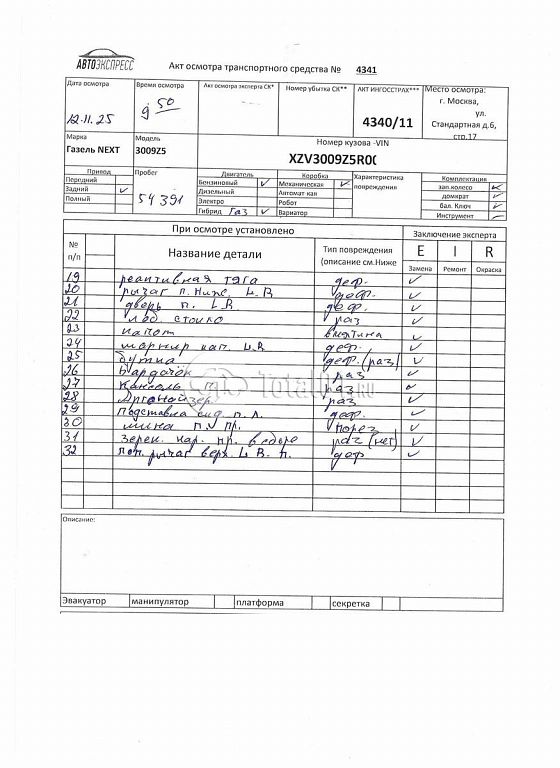 АВТОЭКСПРЕСС
Акт осмотра транспортного средства № 4341
Дата осмотра
12.11.25
Время осмотра
9 50
Акт осмотра эксперта СК*
Номер убытка СК**
АКТ ИНГОССТРАХ***
4340/11
Место осмотра:
г. Москва,
ул.
Стандартная д.6,
стр.17
Марка
Газель NEXT
Модель
3009Z5
Номер кузова -VIN
XZV3009Z5R0
Привод
Передний
Задний ✓
Полный
Пробег
54391
Двигатель
Бензиновый ✓
Дизельный
Электро
Гибрид Газ ✓
Коробка
Механическая ✓
Автомат кая
Робот
Вариатор
Характеристика
повреждения
Комплектация
зап.колесо ✓
домкрат ✓
бал. Ключ ✓
Инструмент
При осмотре установлено
Заключение эксперта
№
п/п
Название детали
Тип повреждения
(описание см.Ниже
E I R
Замена Ремонт Окраска
19 реактивная тяга деф. ✓
20 рычаг п. Ниж. L.R деф. ✓
21 дверь п. L.R деф. ✓
22 лоб. стекло раз ✓
23 капот вмятина ✓
24 шарнир кап. L.R деф. ✓
25 деф.(раз) ✓
26 Бардачок раз ✓
27 Консоль п. раз ✓
28 раз ✓
29 Подставка сид. п.л. деф. ✓
30 шина п. пр. порез ✓
31 Зерк. нар. пр. в сборе раз (нет) ✓
32 поп. рычаг верх. L.R. п. деф ✓
TotalU.RU
Описание:
Эвакуатор
манипулятор
платформа
секретка